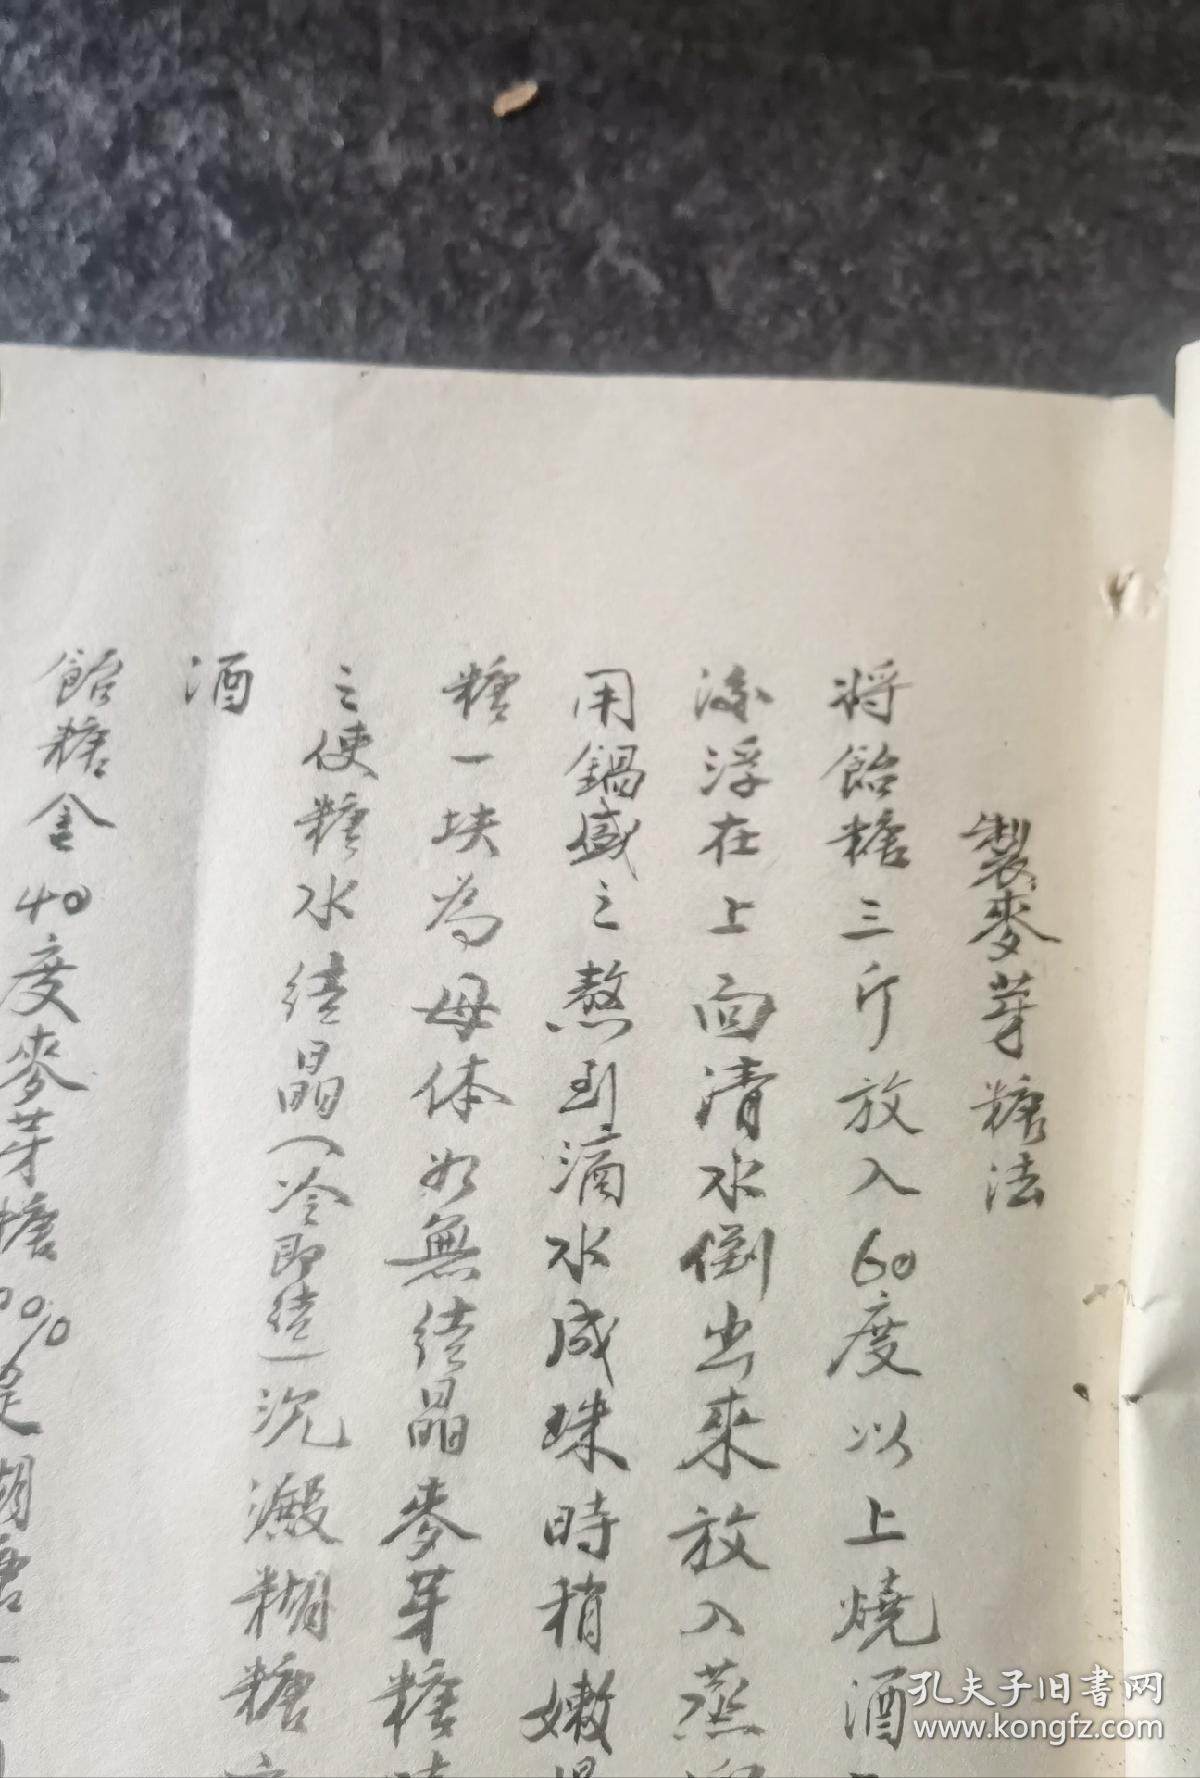 製麥芽糖法
将飴糖三斤放入60度以上燒酒
浮在上面清水倒出來放入蒸
用鍋盛之熬到滴水成珠時稍嫩
糖一块為母体如無结晶麥芽糖
之使糖水结晶(冷即结)沉澱糊糖
酒
飴糖含40度麥芽糖
孔夫子旧书网
www.kongfz.com